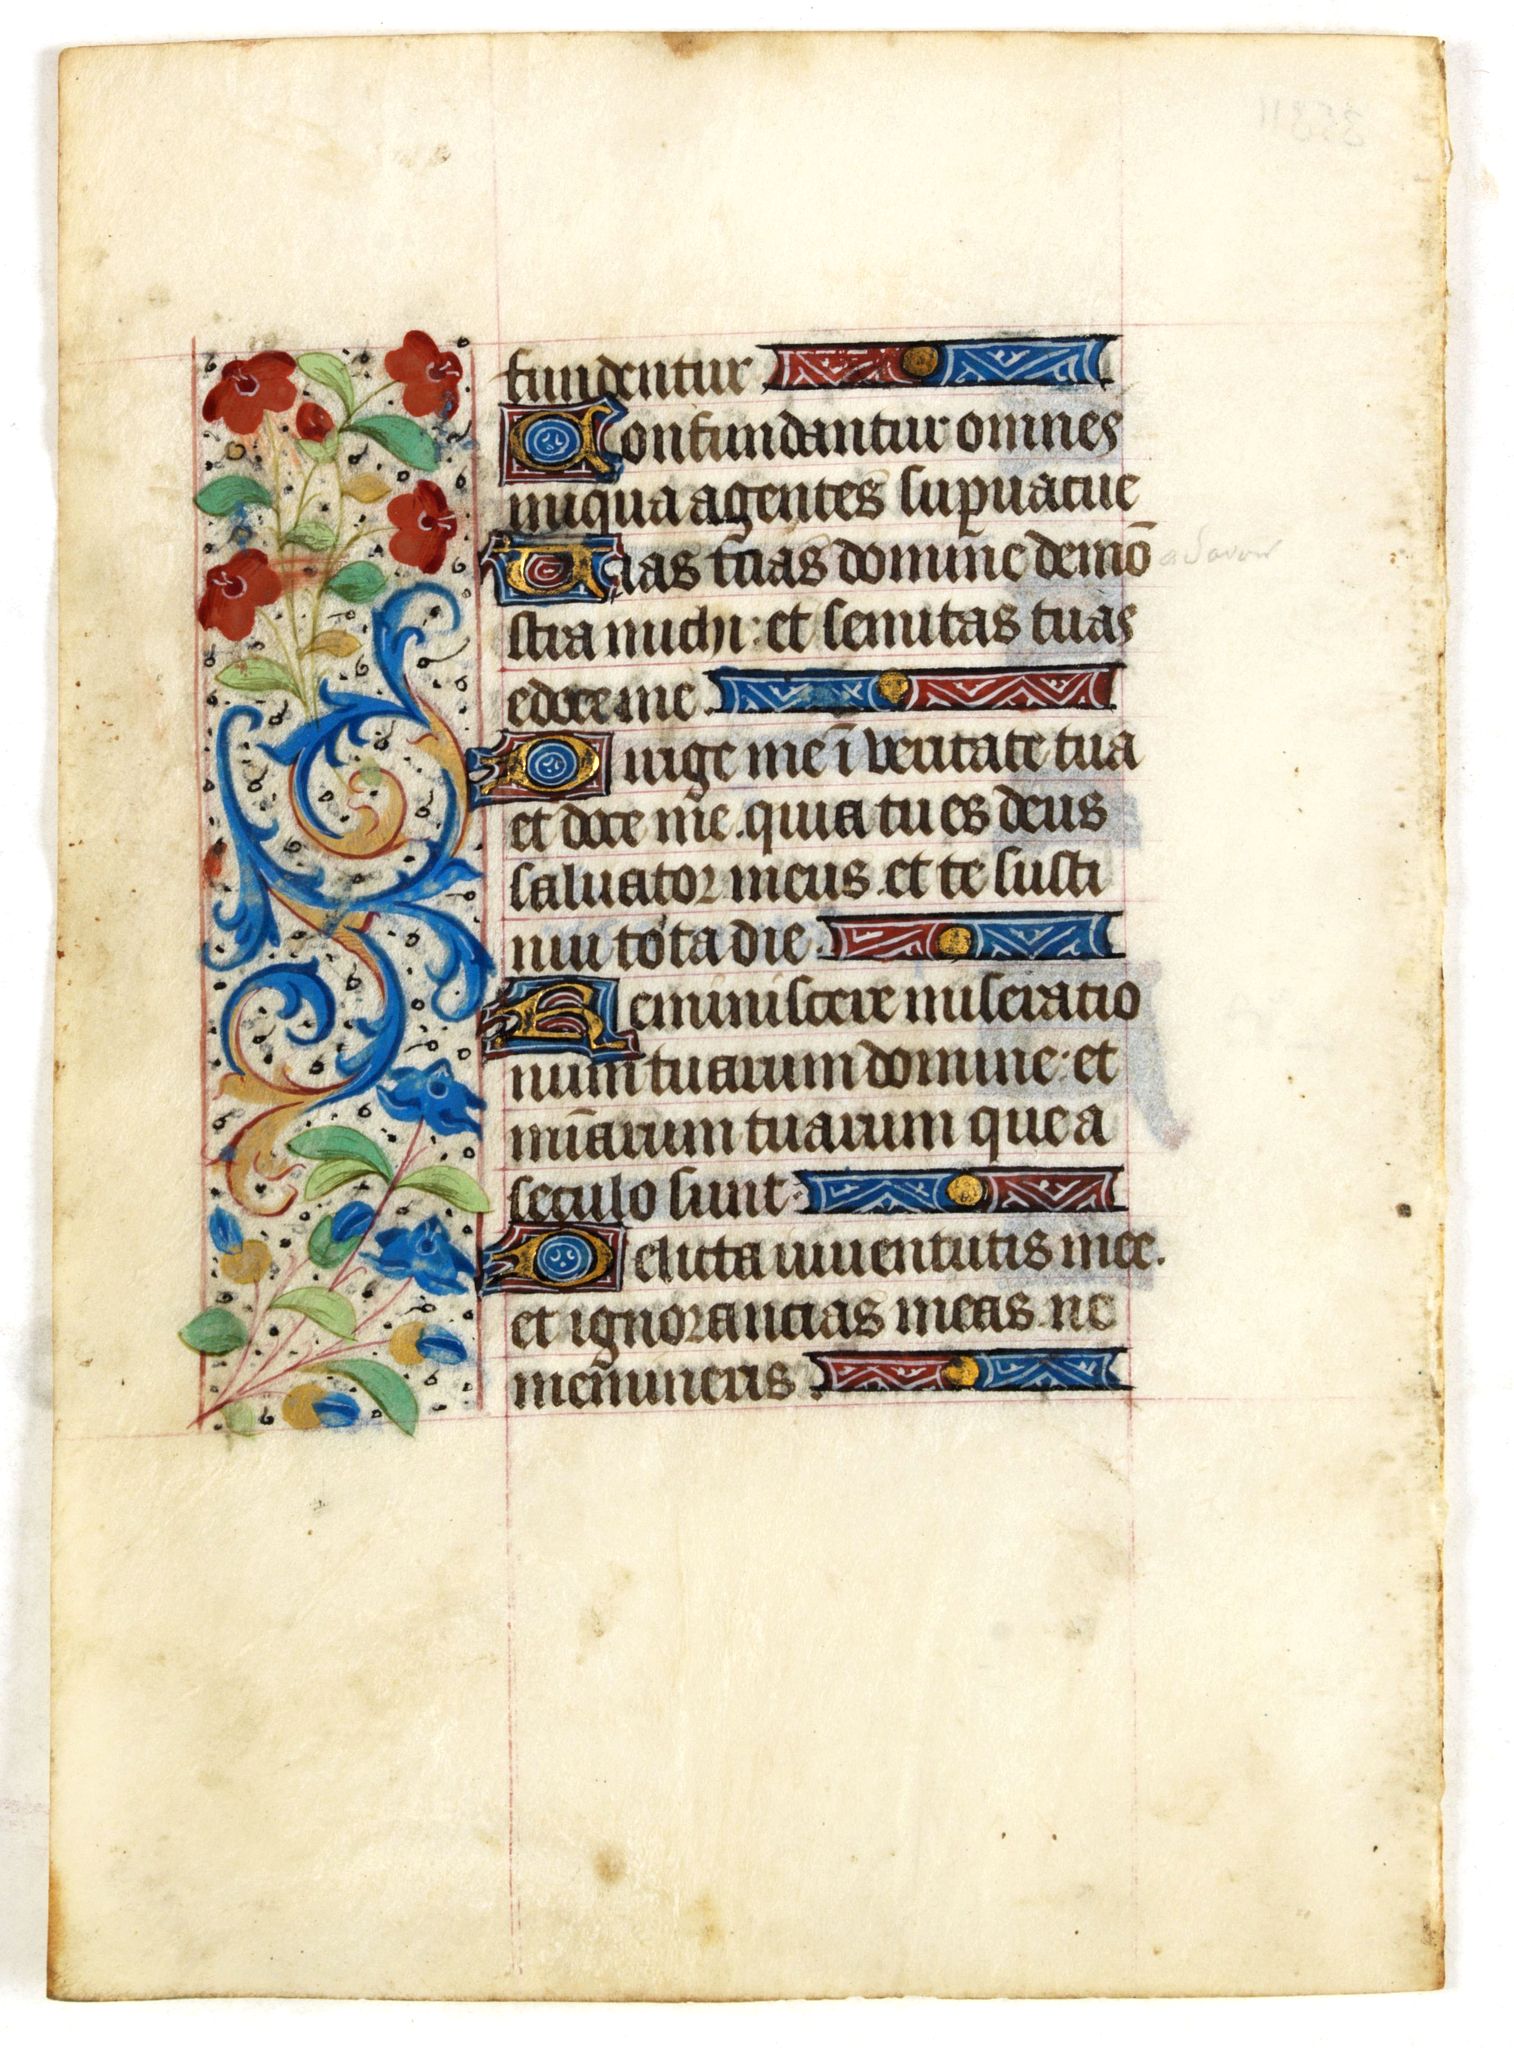 fundentur
Confundantur omnes
iniqua agentes sup̱uacue
Uias tuas domine demō
stra michi: et semitas tuas
edoce me
Dirige me ī veritate tua
et doce me. quia tu es deus
saluator meus. et te susti
nui tota die.
Reminiscere miseratio
num tuarum domine: et
mīarum tuarum que a
seculo sunt:
Delicta iuuentutis mee.
et ignorancias meas ne
memineris.